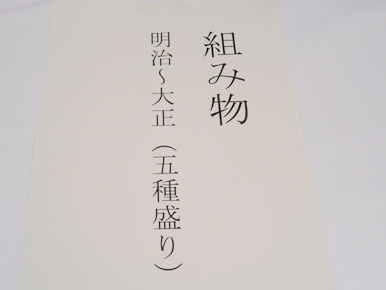 組み物
明治〜大正（五種盛り）